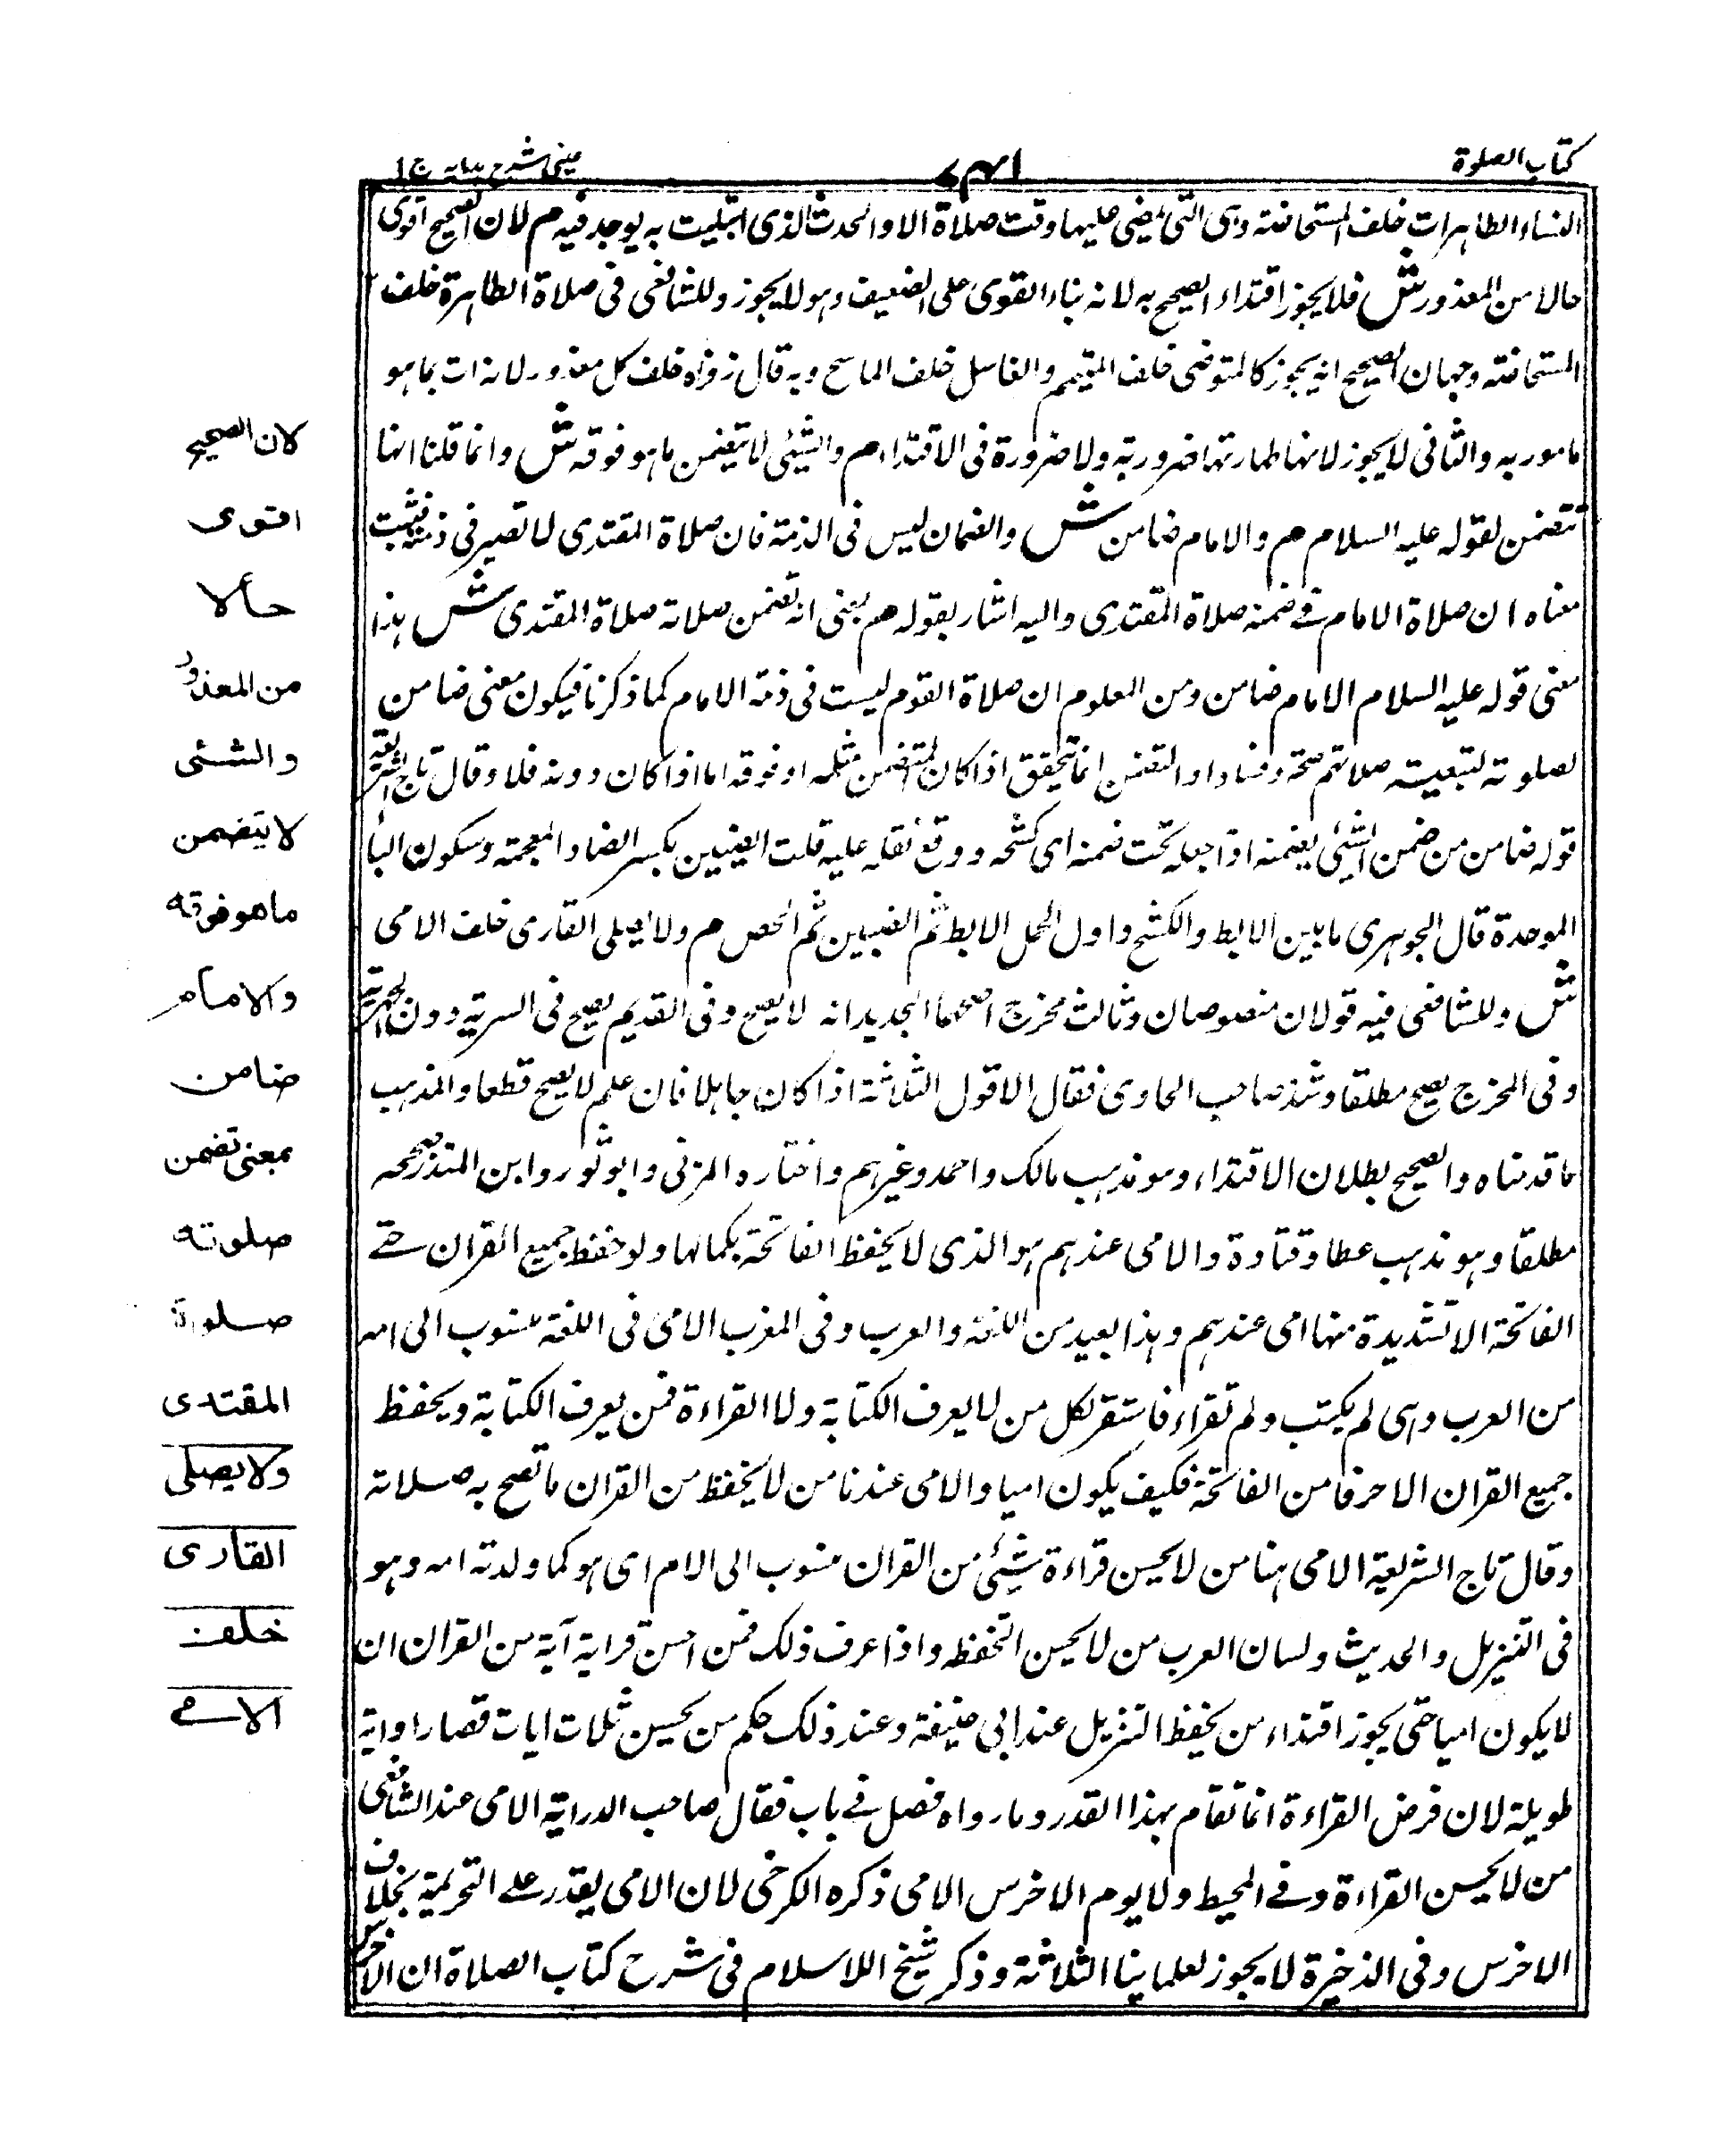 كتاب الصلوة
٧٤١
عينى شرح هدايه ج ١
النساء الطاهرات خلف المستحاضة وهى التى لا يمضى عليها وقت صلاة الا والحدث الذى ابتليت به يوجد فيه م لان الصحيح اقوى
حالا من المعذور ش فلا يجوز اقتداء الصحيح به لانه بناء القوى على الضعيف وهو لا يجوز وللشافعى فى صلاة الطاهرة خلف
المستحاضة وجهان الصحيح انه يجوز كالمتوضى خلف المتيمم والغاسل خلف الماسح وبه قال زفر اه خلف كل معذور لانه ات بما هو
مامور به والثانى لا يجوز لانها طهارتها ضرورية ولا ضرورة فى الاقتداء م والشيئى لا يتضمن ما هو فوقه ش وانما قلنا انها
تتضمن لقوله عليه السلام م والامام ضامن ش والضمان ليس فى الذمة فان صلاة المقتدى لا تصير فى ذمته فثبت
معناه ان صلاة الامام فى ضمنه صلاة المقتدى واليه اشار بقوله م يعنى انه تضمن صلاته صلاة المقتدى ش هذا
معنى قوله عليه السلام الامام ضامن ومن المعلوم ان صلاة القوم ليست فى ذمة الامام كما ذكرنا فيكون معنى ضامن
لصلوته لتبعية صلاتهم صحة وفسادا والتضمن انما يتحقق اذا كان المتضمن مثله او فوقه اما اذا كان دونه فلا وقال تاج الشريعة
قوله ضامن من ضمن الشيئى يضمنه اذا جعله تحت ضمنه اى كشحه ووقع ثقله عليه قلت الضبين بكسر الضاد المعجمة وسكون البا
الموحدة قال الجوهرى ما بين الابط والكشح واول الحمل الابط ثم الضبين ثم الحضن م ولا يصلى القارى خلف الامى
ش وللشافعى فيه قولان منصوصان وثالث مخرج اصحهما الجديد انه لا يصح وفى القديم يصح فى السرية دون الجهرية
وفى المخرج يصح مطلقا وشذ صاحب الحاوى فقال الاقول الثلاثة اذا كان جاهلا فان علم لا يصح قطعا والمذهب
ما قدمناه والصحيح بطلان الاقتداء وهو مذهب مالك واحمد وغيرهم واختاره المزنى وابو ثور وابن المنذر صححه
مطلقا وهو مذهب عطا وقتادة والامى عندهم هو الذى لا يحفظ الفاتحة بكمالها ولو حفظ جميع القران حتى
الفاتحة الا تشديدة منها امى عندهم وهذا بعيد من اللغة والعرب وفى المغرب الامى فى اللغة منسوب الى امه
من العرب وهى لم يكتب ولم تقراء فاستقر لكل من لا يعرف الكتابة ولا القراءة فمن يعرف الكتابة ويحفظ
جميع القران الا حرفا من الفاتحة فكيف يكون اميا والامى عندنا من لا يحفظ من القران ما تصح به صلاته
وقال تاج الشريعة الامى هنا من لا يحسن قراءة شيئى من القران منسوب الى الام اى هو كما ولدته امه وهو
فى التنزيل والحديث ولسان العرب من لا يحسن التحفظ واذا عرف ذلك فمن احسن قراية آية من القران ان
لا يكون اميا حتى يجوز اقتداء من يحفظ التنزيل عند ابى حنيفة وعند ذلك حكم من يحسن ثلاث ايات قصار او اية
طويلة لان فرض القراءة انما تقام بهذا القدر وما رواه فصل فى باب فقال صاحب الدراية الامى عند الشافعى
من لا يحسن القراءة وفى المحيط ولا يوم الاخرس الامى ذكره الكرخى لان الامى يقدر على التحريمة بخلاف
الاخرس وفى الذخيرة لا يجوز لعلمائنا الثلاثة وذكر شيخ الاسلام فى شرح كتاب الصلاة ان الاخرس
لان الصحيح
اقوى
حالا
من المعذور
والشئى
لا يتضمن
ما هو فوقه
والامام
ضامن
بمعنى تضمن
صلوته
صلوة
المقتدى
ولا يصلى
القارى
خلف
الامى